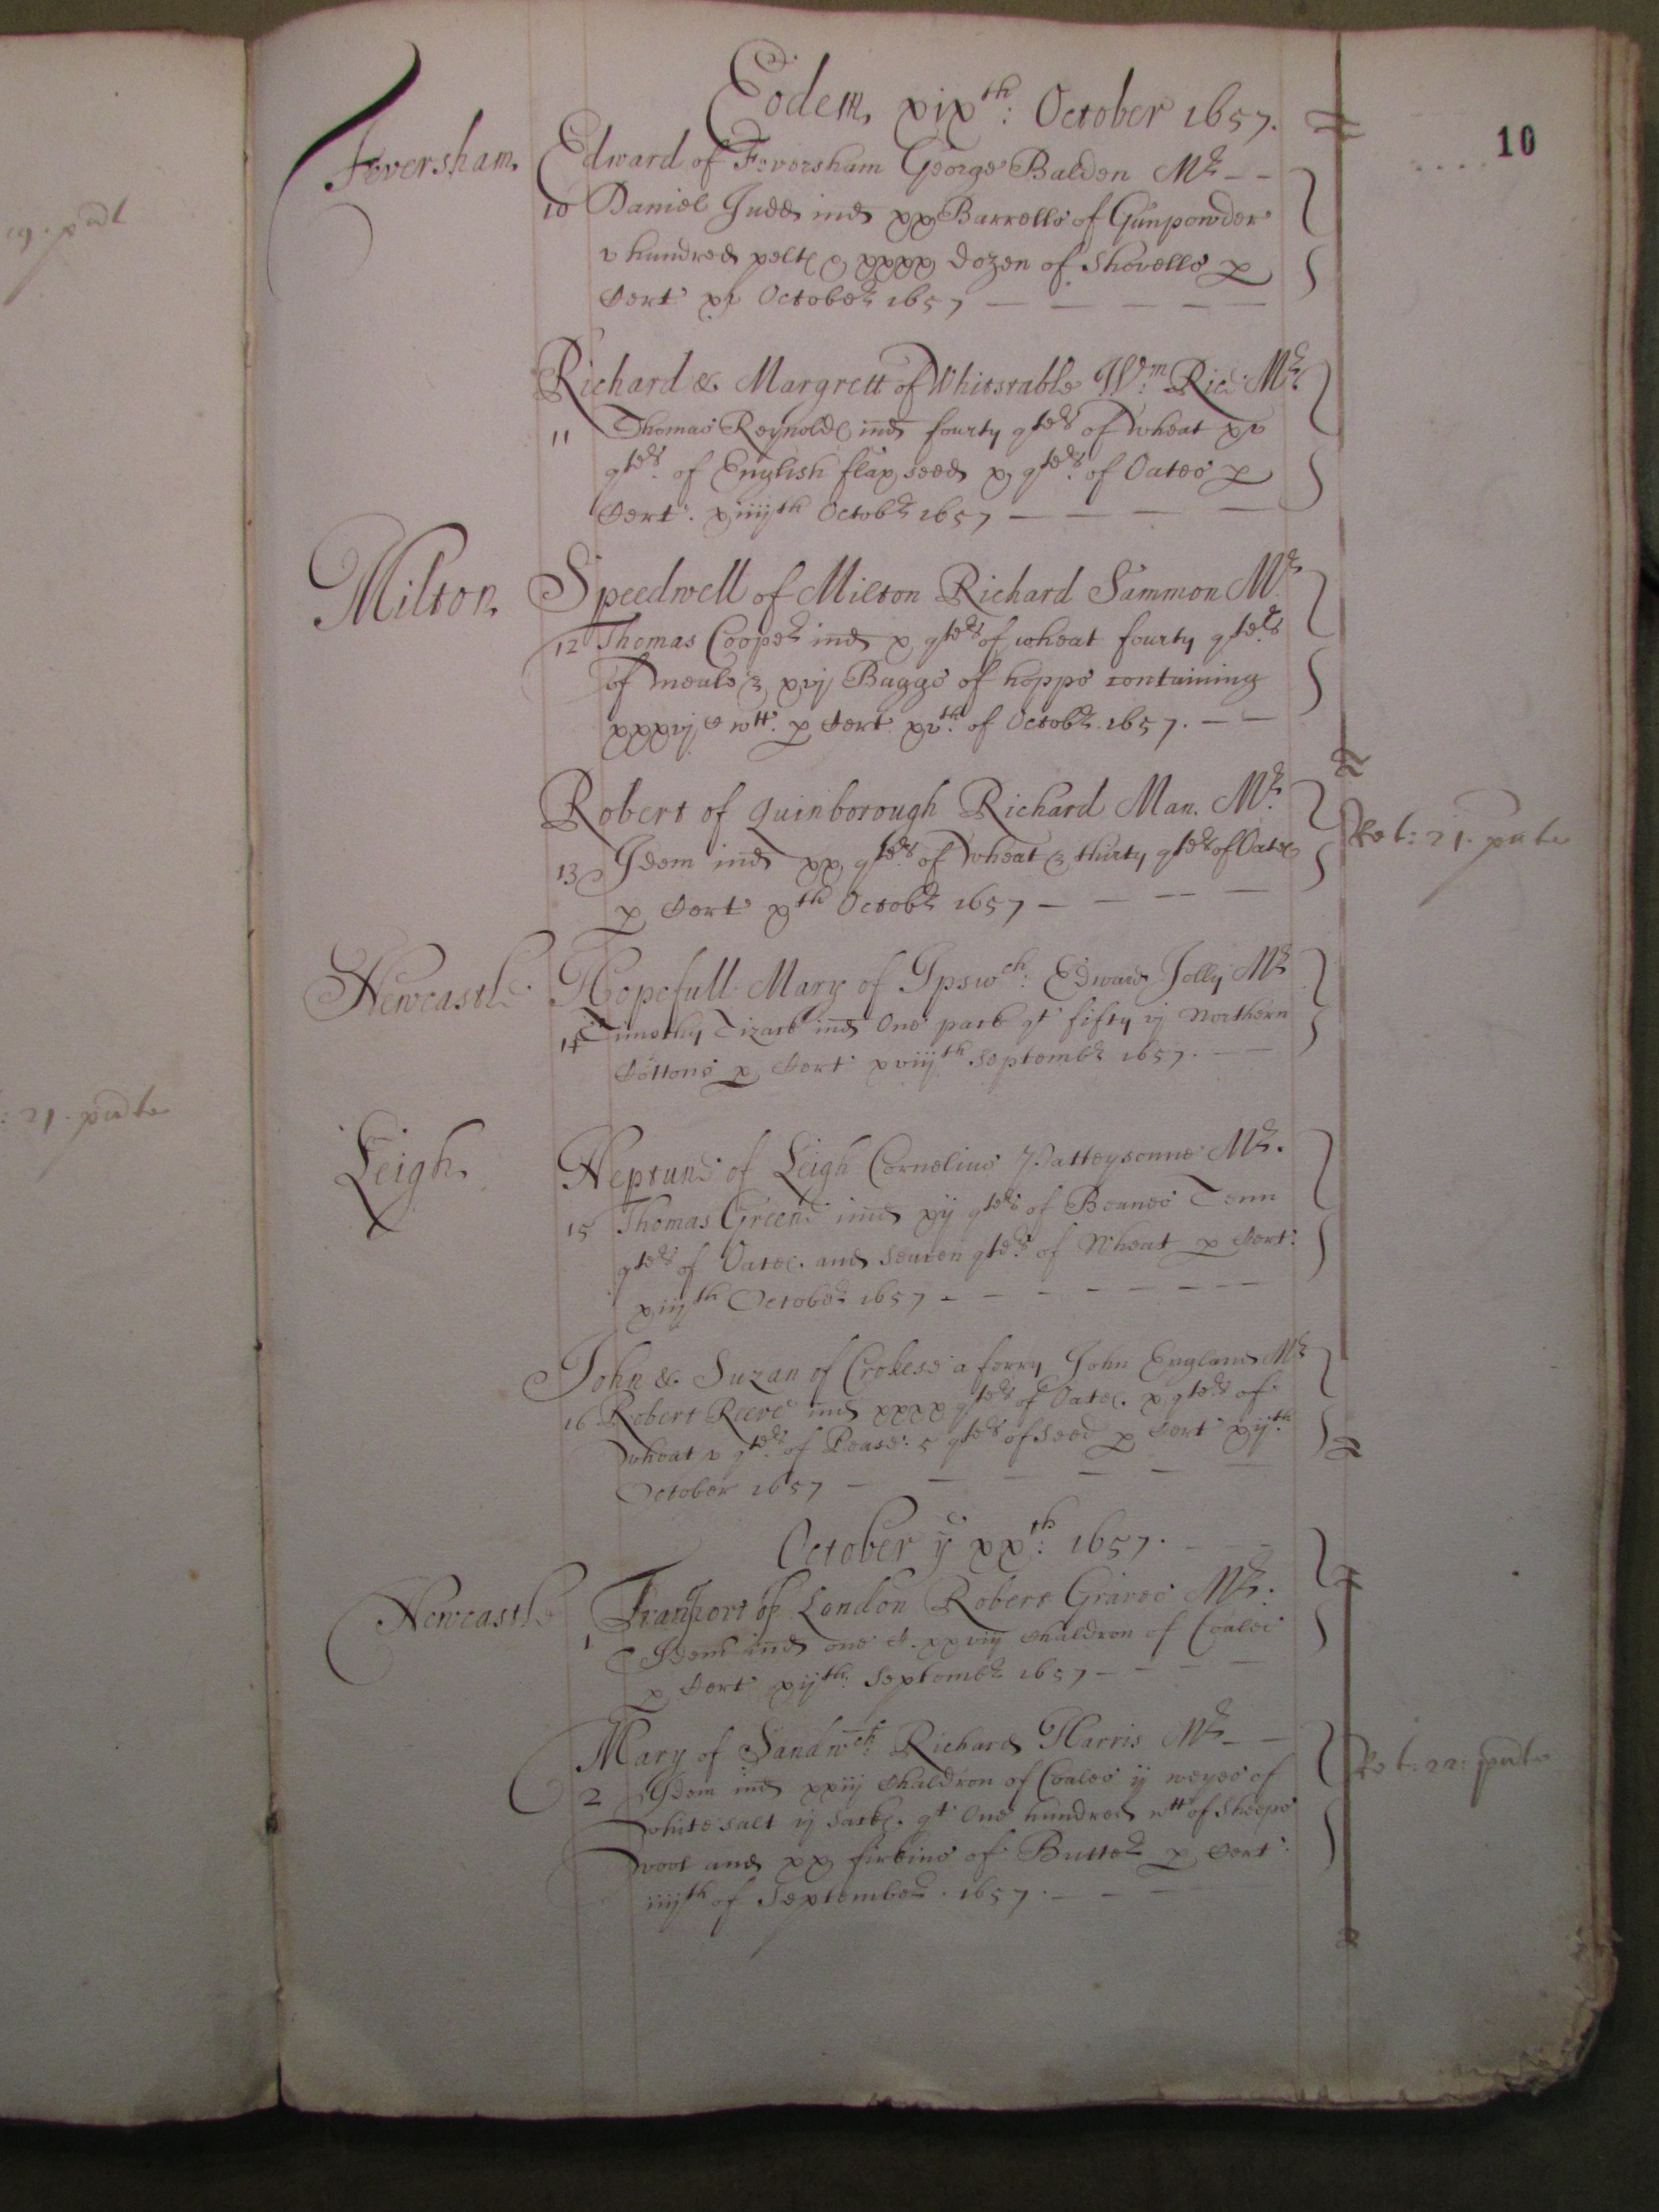 Eodem, xixth: October 1657.
10
Feversham,
Edward of Feversham George Balden Mr
10 Daniel Judd ind xx Barrells of Gunpowder
v hundred pelts & xxxx dozen of Shovells p
Cert xv October 1657
Richard & Margrett of Whitstable Wm: Ric: Mr
11 Thomas Reynolds ind fourty qters of wheat xv
qters. of English flax seed x qters. of Oates p
Cert. xiiijth Octobr 1657
Milton
Speedwell of Milton Richard Sammon Mr
12 Thomas Cooper ind x qters of wheat fourty qters
of meale & xvj Baggs of hopps containing
xxxvj C wtt. p Cert xvth. of Octobr. 1657.
Robert of Quinborough Richard Man. Mr
13 Idem ind xx qters of wheat & thirty qters of Oates
p Cert xth Octobr 1657
Ret: 21. pnte
Newcastle
Hopefull Mary of Ipswch: Edward Jolly Mr
14 Timothy Tizack ind One pack qt fifty vj Northern
Cottons p Cert xviijth Septembr 1657.
: 21. pnte
Leigh,
Neptune of Leigh Cornelius Patteysonne Mr.
15 Thomas Greene ind xij qters of Beanes Tenn
qters of Oates. and Seaven qters of Wheat p Cert:
xiijth October 1657
John & Suzan of Crokese a ferry John England Mr
16 Robert Reeve ind xxxx qters of Oates. x qters of
wheat v qters of Pease: 5 qters of Seed p Cert xijth
October 1657
October ye xxth: 1657.
Newcastle
Transport of London Robert Graves Mr:
1 Idem ind one C. xxviij Chaldron of Coales
p Cert xijth: Septembr 1657
Mary of Sandwch: Richard Harris Mr
2 Idem ind xxiij Chaldron of Coales ij weyes of
white salt ij sacks. qt One hundred wtt of Sheeps
wool and xx firkins of Butter p Cert
iiijth of September. 1657.
Ret: 22: pnte